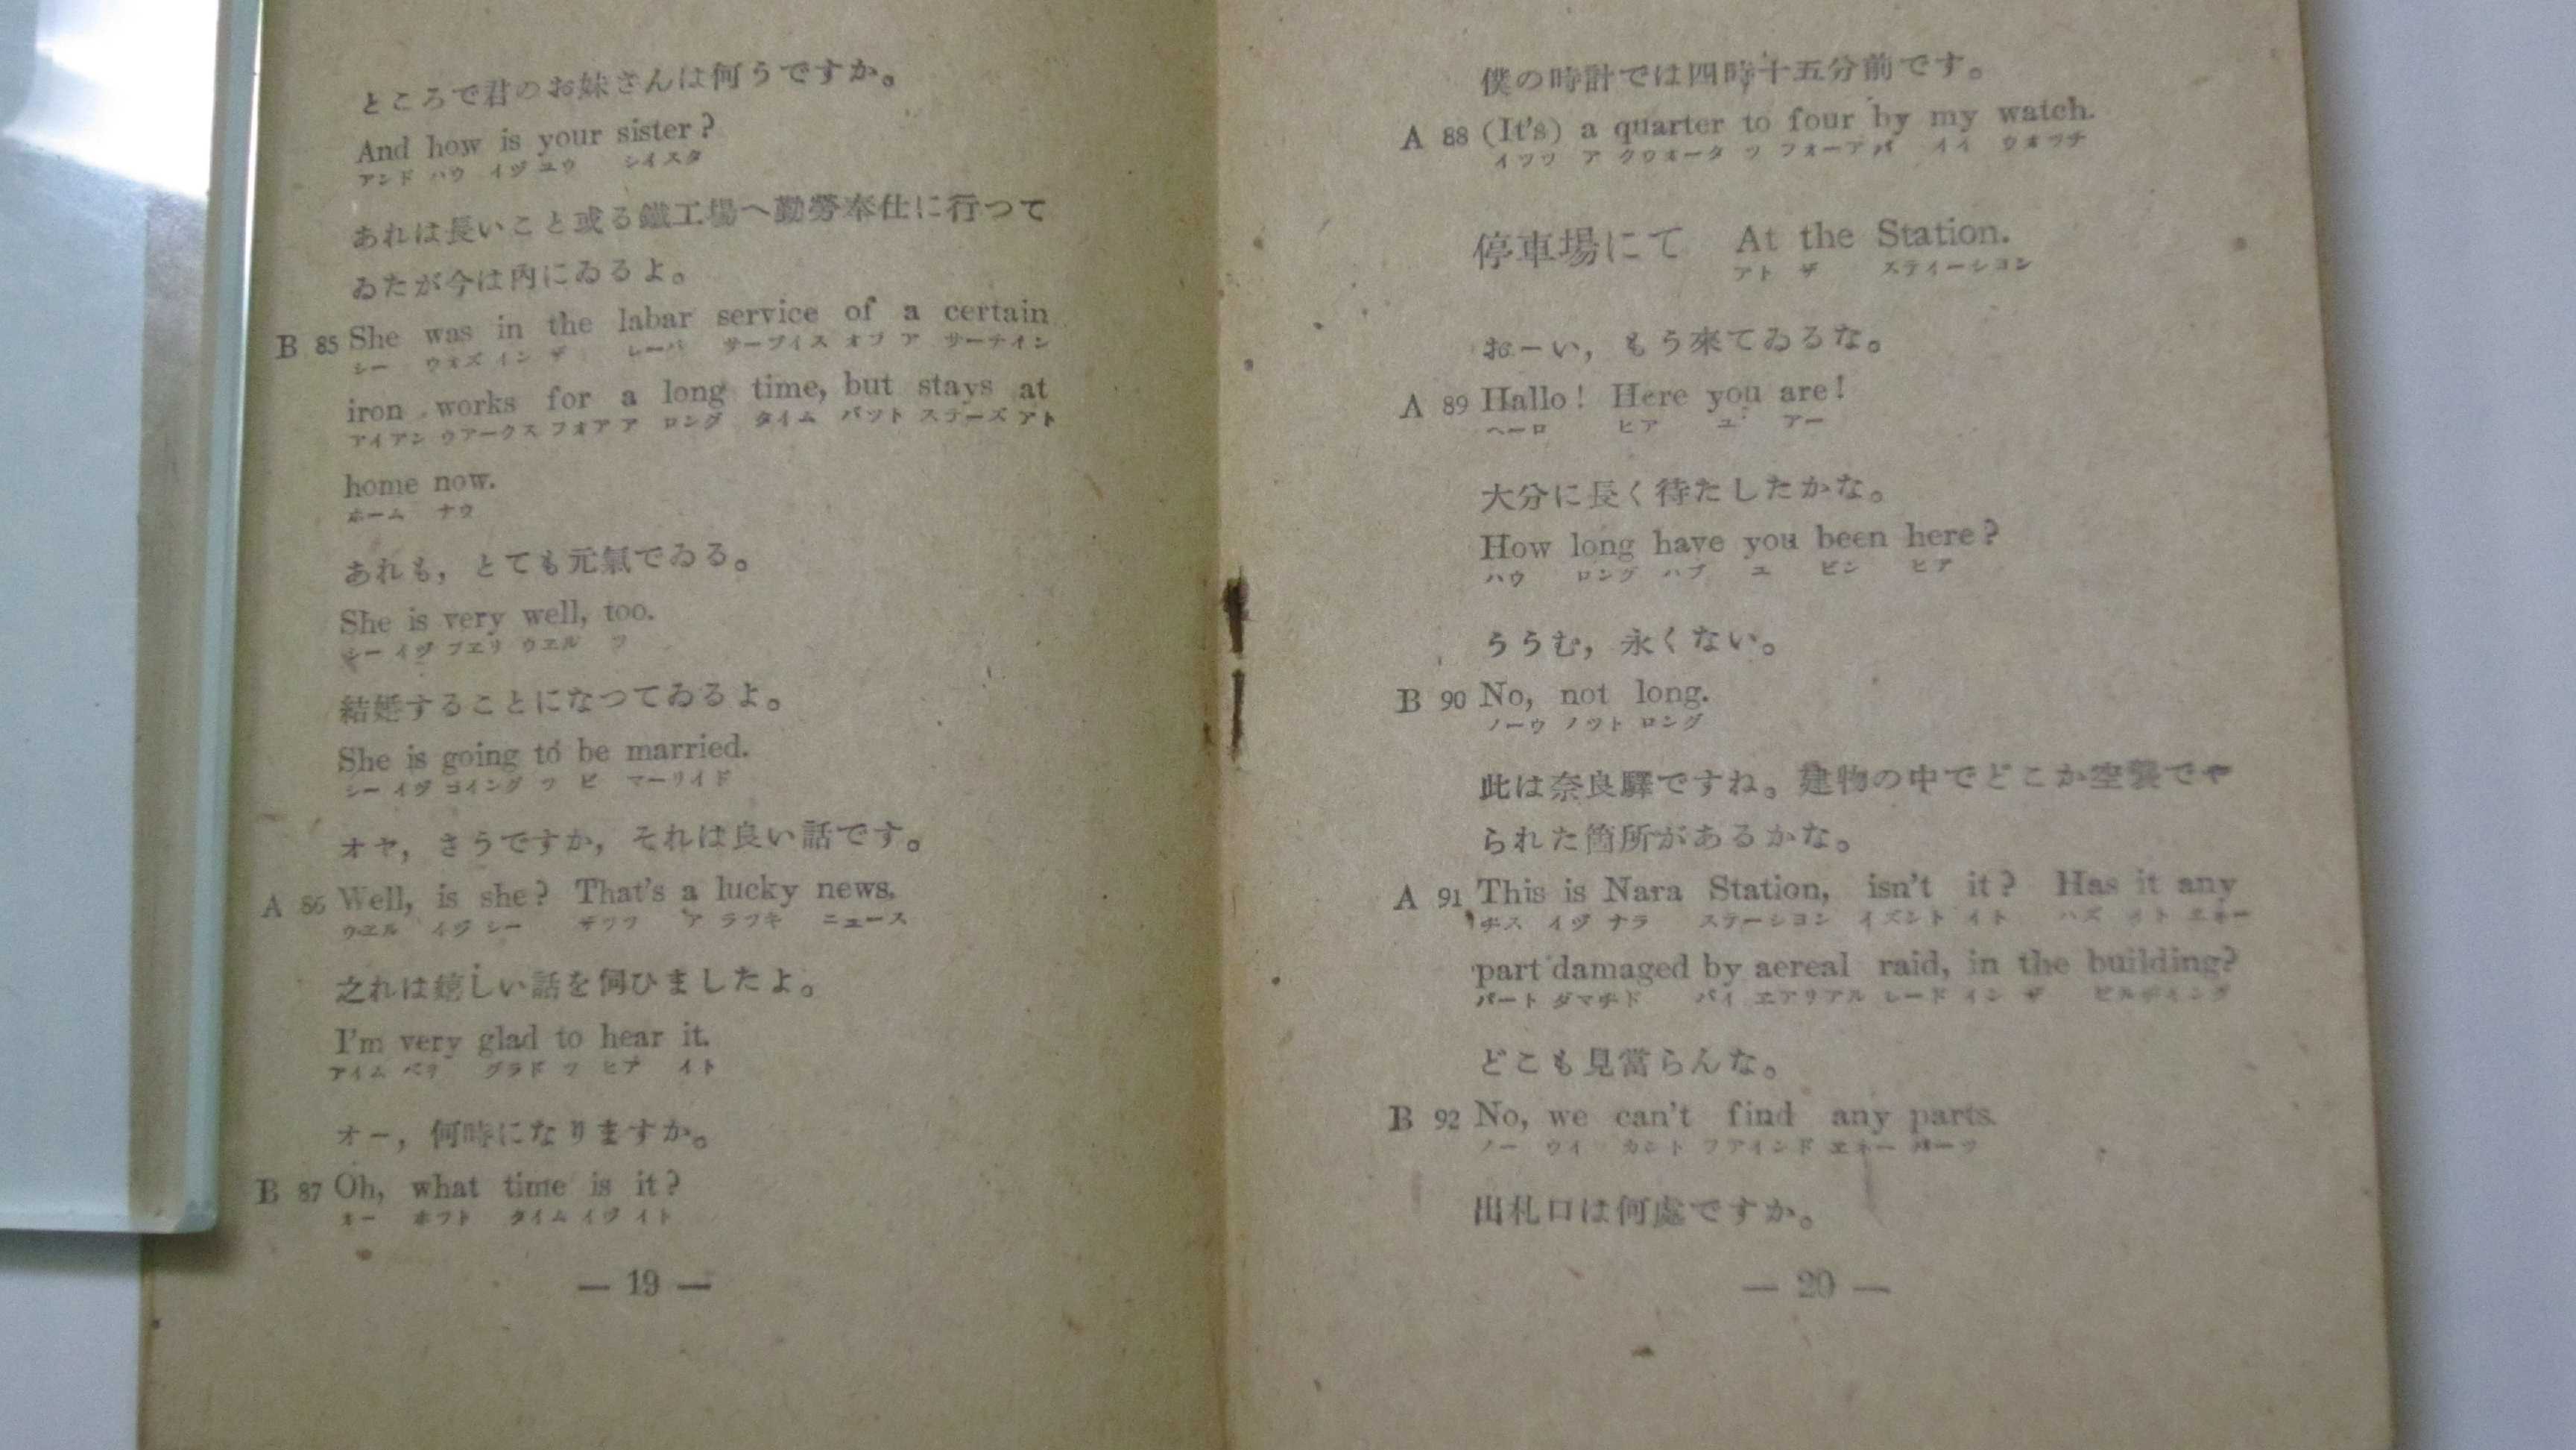 ところで君のお妹さんは何うですか。
And how is your sister?
アンド ハウ イヅ ユウ シイスタ
あれは長いこと或る鐵工場へ勤勞奉仕に行つて
ゐたが今は內にゐるよ。
B 85 She was in the labar service of a certain
シー ウオズ イン ザ レーバ サーブイス オブ ア サーテイン
iron works for a long time, but stays at
アイアン ウアークス フオア ア ロング タイム バツト ステーズ アト
home now.
ホーム ナウ
あれも，とても元氣でゐる。
She is very well, too.
シー イヅ ブエリ ウエル ツ
結婚することになつてゐるよ。
She is going to be married.
シー イヅ ゴイング ツ ビ マーリイド
オヤ，さうですか，それは良い話です。
A 86 Well, is she? That's a lucky news.
ウエル イヅ シー ザツツ ア ラツキ ニュース
之れは嬉しい話を伺ひましたよ。
I'm very glad to hear it.
アイム ベリ グラド ツ ヒア イト
オー，何時になりますか。
B 87 Oh, what time is it?
オー ホフト タイム イヅ イト
— 19 —
僕の時計では四時十五分前です。
A 88 (It's) a quarter to four by my watch.
イツツ ア クウオータ ツ フオーア バイ イイ ウオツチ
停車場にて At the Station.
アト ザ ステイーシヨン
おーい，もう來てゐるな。
A 89 Hallo! Here you are!
ヘーロ ヒア ユー アー
大分に長く待たしたかな。
How long have you been here?
ハウ ロング ハブ ユ ビン ヒア
ううむ，永くない。
B 90 No, not long.
ノーウ ノツト ロング
此は奈良驛ですね。建物の中でどこか空襲でや
られた箇所があるかな。
A 91 This is Nara Station, isn't it? Has it any
チス イヅ ナラ ステーシヨン イズント イト ハズ イト エネー
part damaged by aereal raid, in the building?
パート ダマヂド バイ エアリアル レード イン ザ ビルデイング
どこも見當らんな。
B 92 No, we can't find any parts.
ノー ウイ カント フアインド エネー パーツ
出札口は何處ですか。
— 20 —